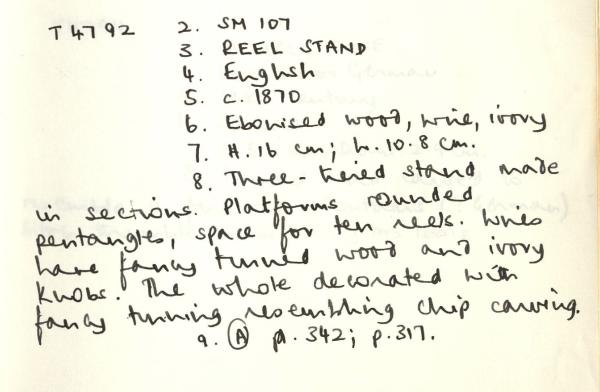 T4792 2. SM 107
3. REEL STAND
4. English
5. c. 1870
6. Ebonised wood, wire, ivory
7. H. 16 cm; h. 10.8 cm.
8. Three-tiered stand made
in sections. Platforms rounded
pentangles, space for ten reels. Wires
have fancy turned wood and ivory
knobs. The whole decorated with
fancy turning resembling chip carving.
9. Ⓐ pl. 342; p. 317.